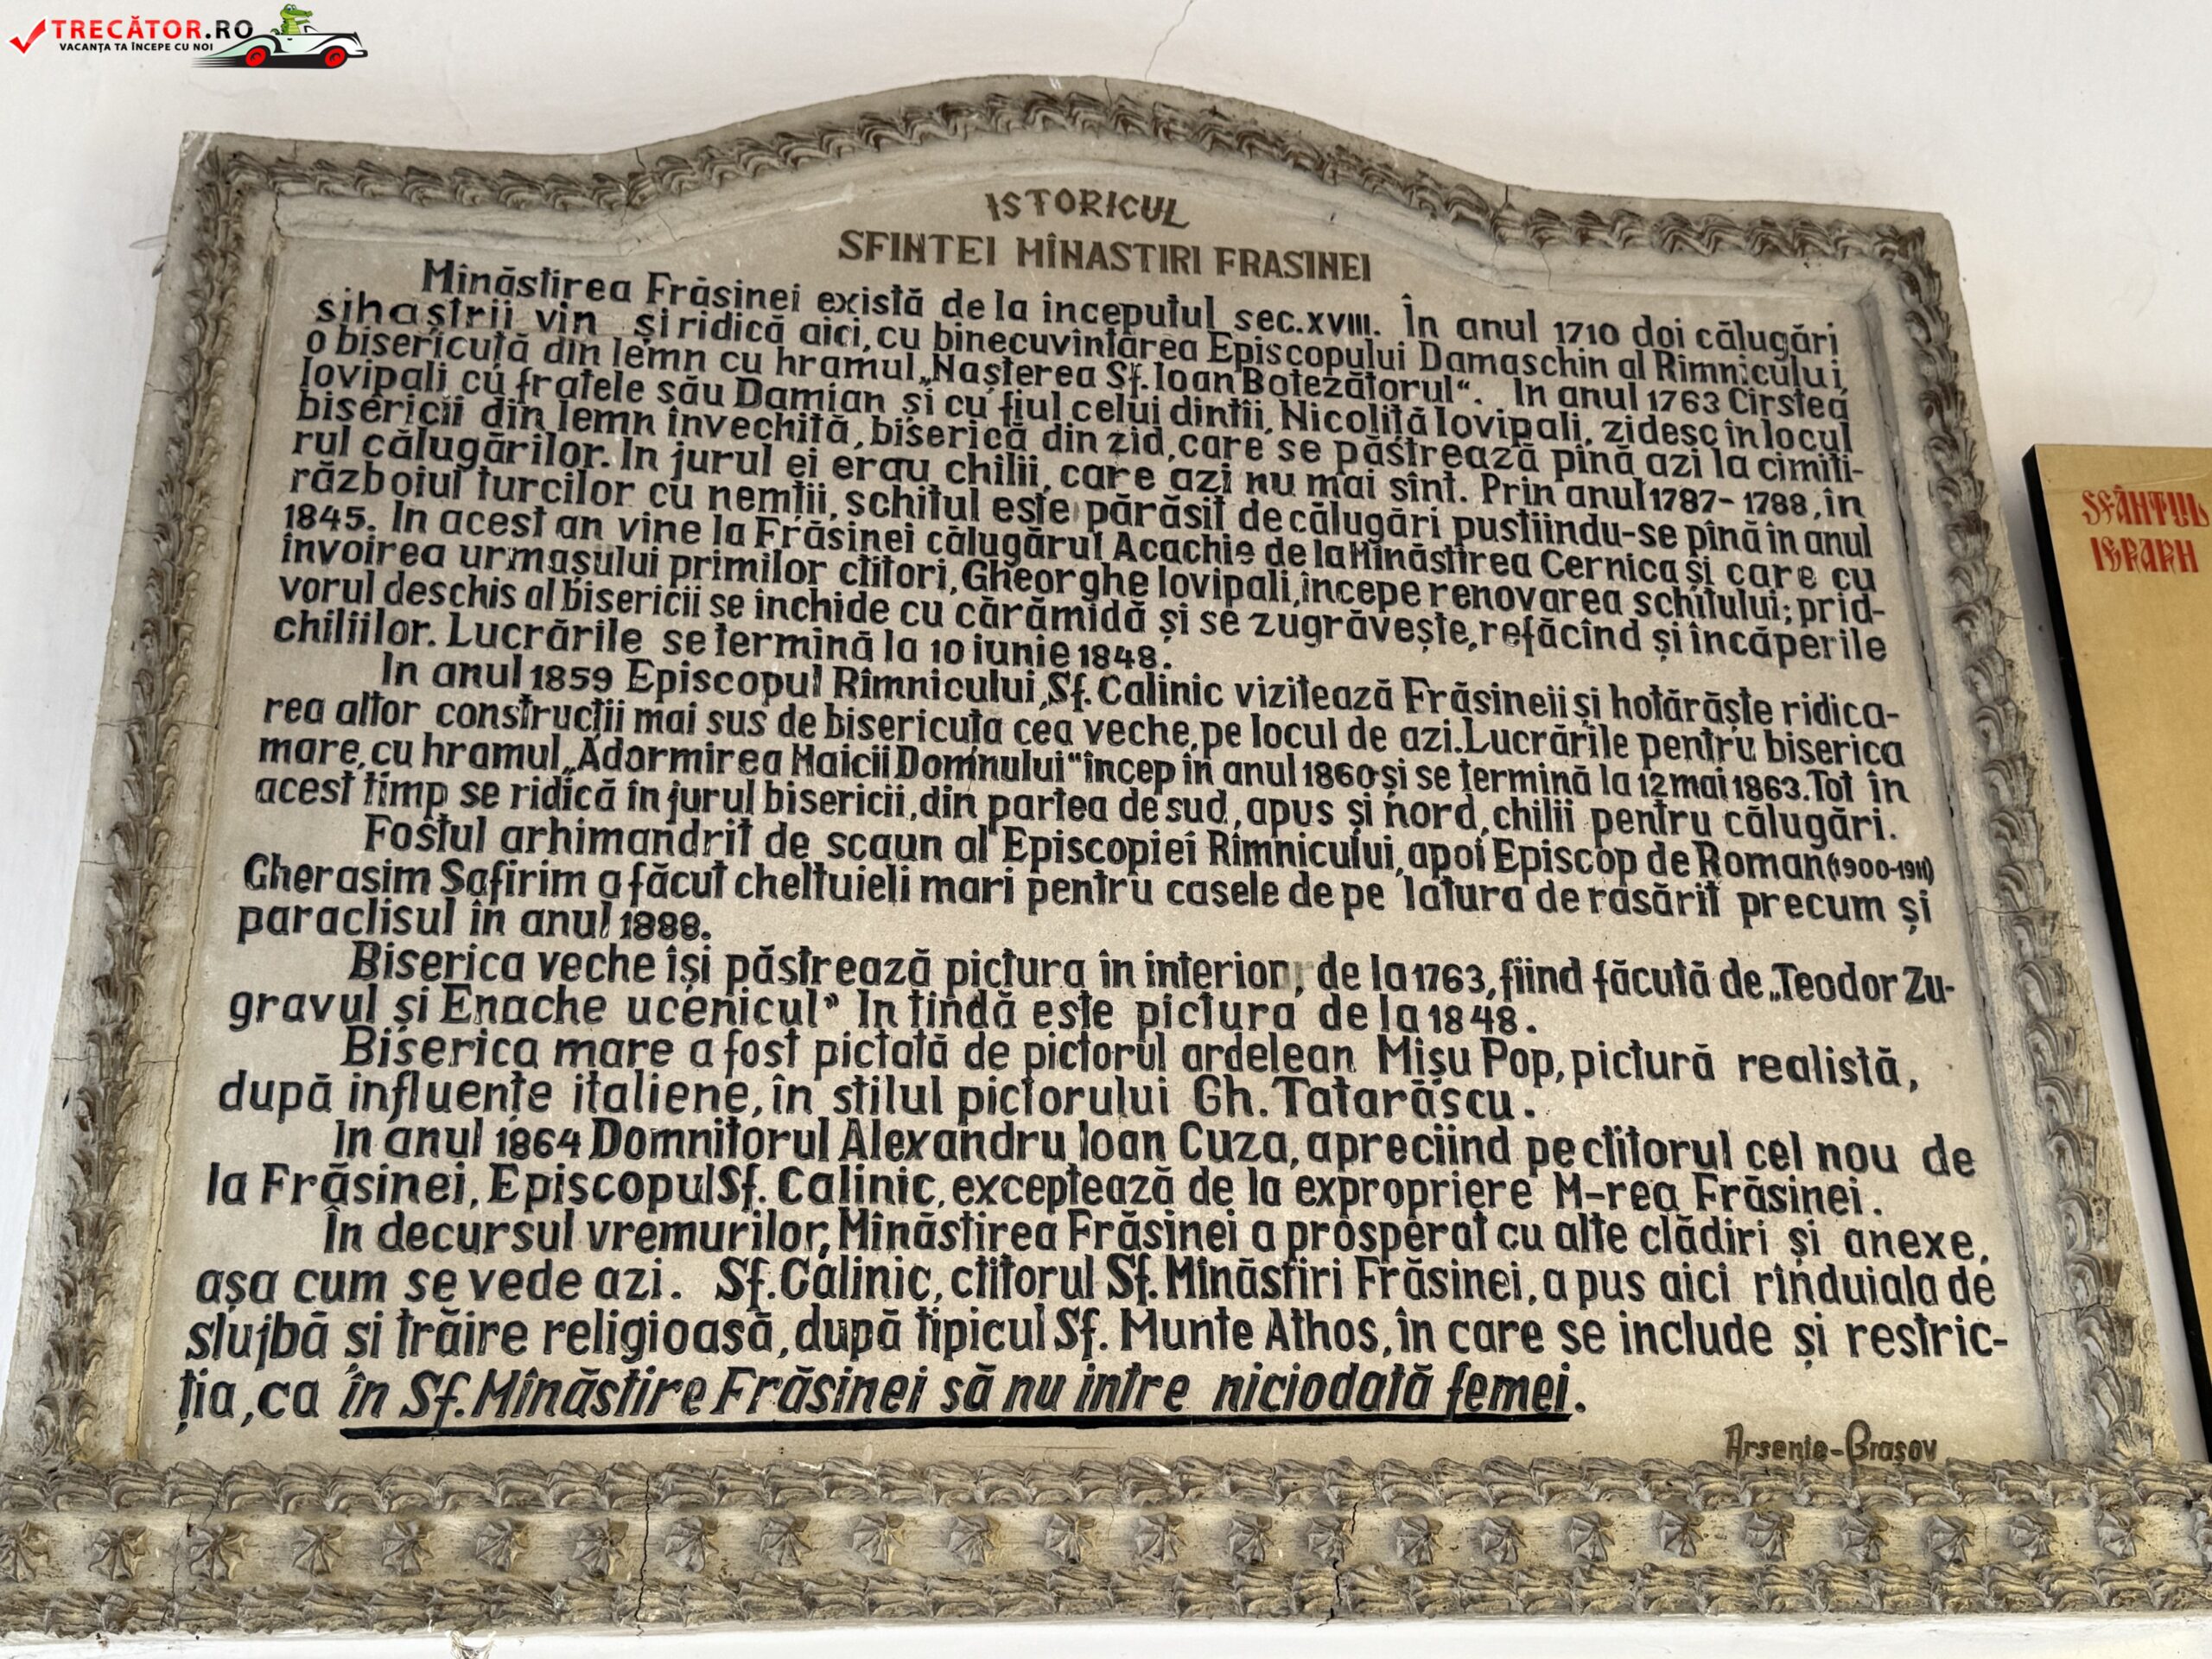 TRECĂTOR.RO
VACANȚA TA ÎNCEPE CU NOI
ISTORICUL
SFINTEI MÎNASTIRI FRASINEI
Mînăstirea Frăsinei există de la începutul sec.XVIII. În anul 1710 doi călugări
sihaștrii vin și ridică aici, cu binecuvîntarea Episcopului Damaschin al Rîmnicului,
o bisericuță din lemn cu hramul „Nașterea Sf. Ioan Botezătorul“. In anul 1763 Cîrstea
Iovipali cu fratele său Damian și cu fiul celui dintîi, Nicoliță Iovipali, zidesc în locul
bisericii din lemn învechită, biserică din zid, care se păstrează pînă azi la cimiti-
rul călugărilor. In jurul ei erau chilii, care azi nu mai sînt. Prin anul 1787-1788, în
războiul turcilor cu nemții, schitul este părăsit de călugări pustiindu-se pînă in anul
1845. In acest an vine la Frăsinei călugărul Acachie de la Mînăstirea Cernica și care cu
învoirea urmașului primilor ctitori, Gheorghe Iovipali, începe renovarea schitului; prid-
vorul deschis al bisericii se închide cu cărămidă și se zugrăvește, refăcînd și încăperile
chiliilor. Lucrările se termină la 10 iunie 1848.
In anul 1859 Episcopul Rîmnicului, Sf. Calinic vizitează Frăsineii și hotărăște ridica-
rea altor construcții mai sus de bisericuța cea veche, pe locul de azi. Lucrările pentru biserica
mare, cu hramul „Adormirea Maicii Domnului“ încep în anul 1860 și se termină la 12 mai 1863. Tot în
acest timp se ridică în jurul bisericii, din partea de sud, apus și nord, chilii pentru călugări.
Fostul arhimandrit de scaun al Episcopiei Rîmnicului, apoi Episcop de Roman (1900-1911)
Gherasim Safirim a făcut cheltuieli mari pentru casele de pe latura de răsărit precum și
paraclisul în anul 1888.
Biserica veche își păstrează pictura în interior, de la 1763, fiind făcută de „Teodor Zu-
gravul și Enache ucenicul” In tindă este pictura de la 1848.
Biserica mare a fost pictată de pictorul ardelean Mișu Pop, pictură realistă,
după influențe italiene, în stilul pictorului Gh. Tatarăscu.
In anul 1864 Domnitorul Alexandru Ioan Cuza, apreciind pe ctitorul cel nou de
la Frăsinei, Episcopul Sf. Calinic, exceptează de la expropriere M-rea Frăsinei.
În decursul vremurilor, Mînăstirea Frăsinei a prosperat cu alte clădiri și anexe,
așa cum se vede azi. Sf. Calinic, ctitorul Sf. Mînăstiri Frăsinei, a pus aici rînduiala de
slujbă și trăire religioasă, după tipicul Sf. Munte Athos, în care se include și restric-
ția, ca în Sf. Mînăstire Frăsinei să nu intre niciodată femei.
Arsenie-Brașov
SFÂNTUL
IERARH